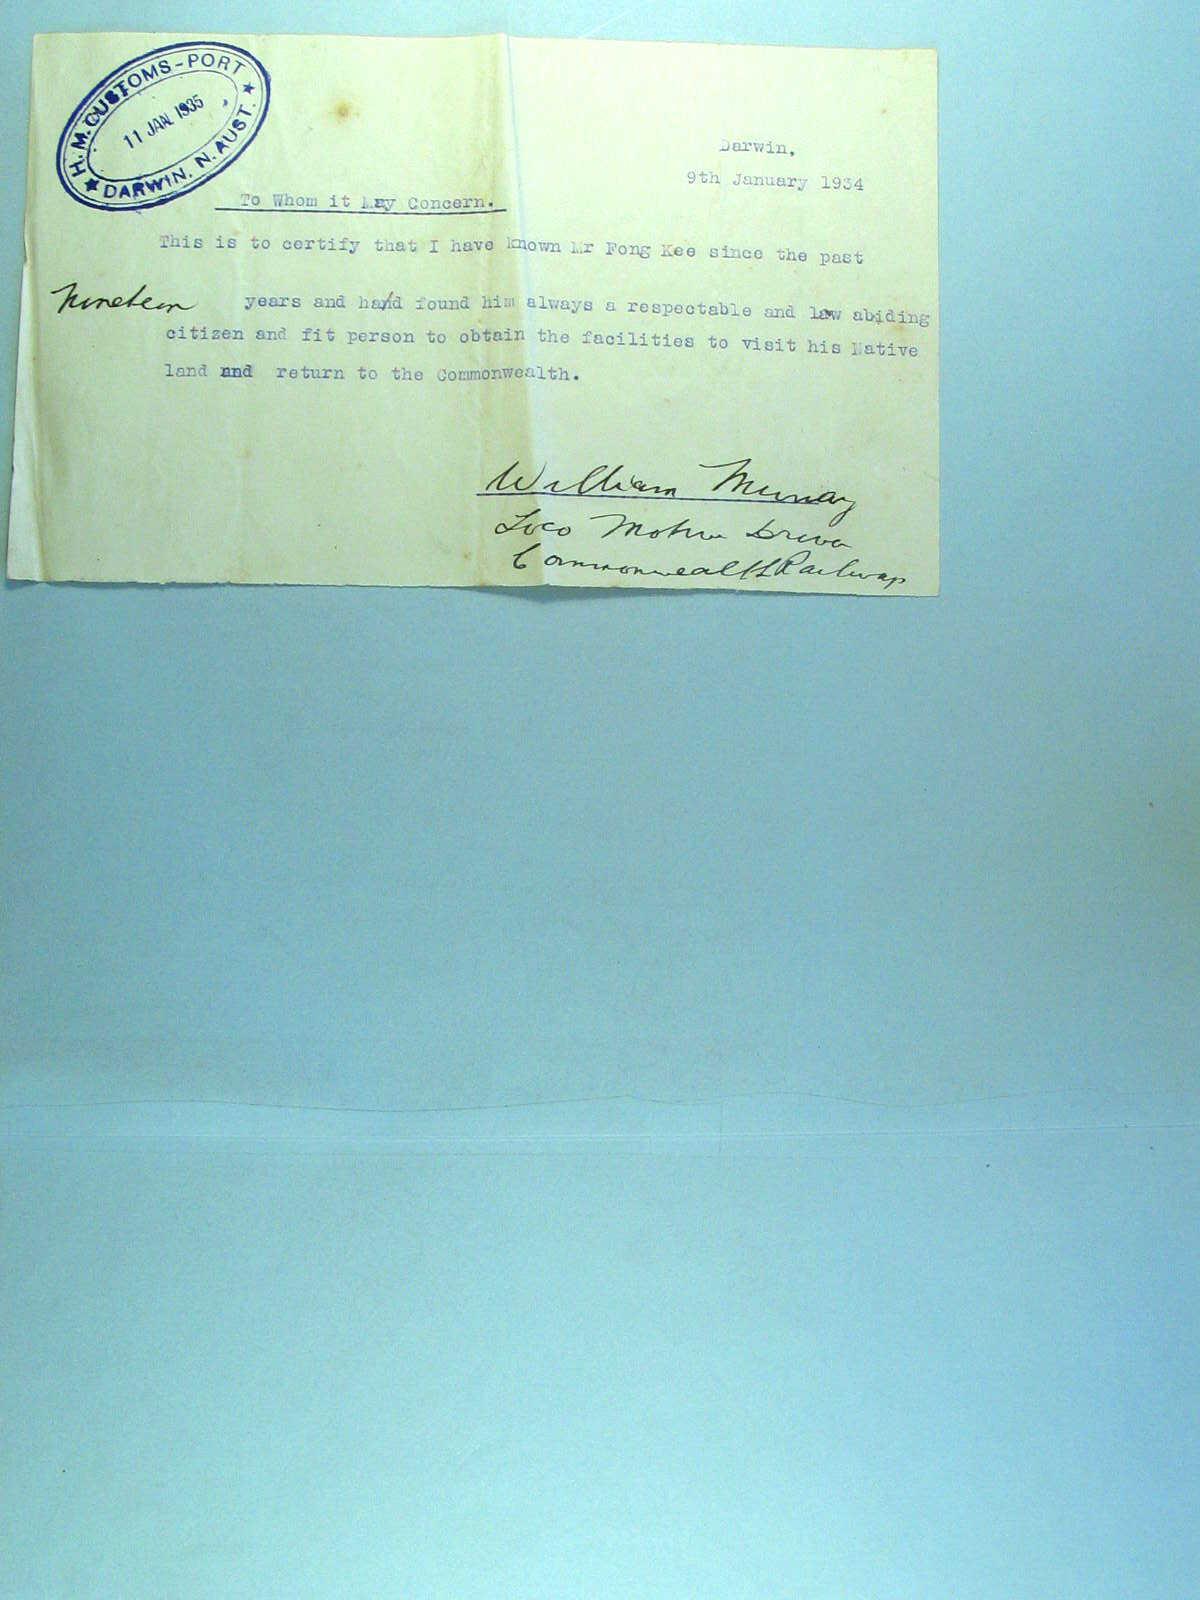 H. M. CUSTOMS - PORT
11 JAN. 1935
DARWIN. N. AUST.
Darwin,
9th January 1934
To Whom it May Concern.
This is to certify that I have known Mr Fong Kee since the past
Nineteen years and hand found him always a respectable and law abiding
citizen and fit person to obtain the facilities to visit his Native
land and return to the Commonwealth.
William Murray
Loco Motive Driver
Commonwealth Railways